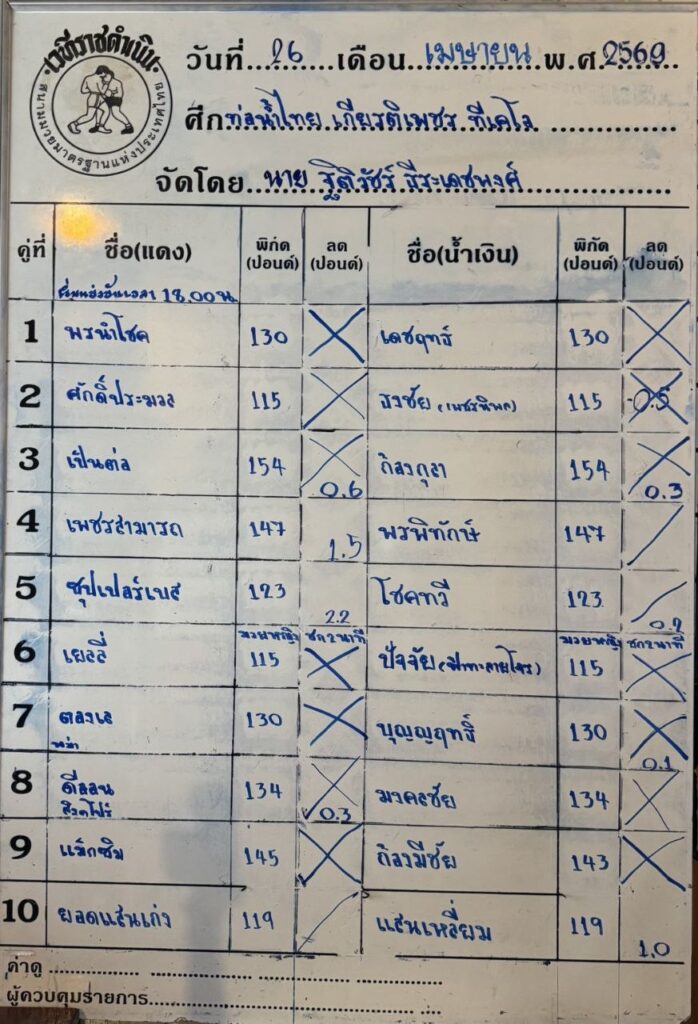 เวทีราชดำเนิน
สนามมวยมาตรฐานแห่งประเทศไทย
วันที่ 26 เดือน เมษายน พ.ศ. 2569
ศึก ท่อน้ำไทย เกียรติเพชร ทีเคโอ
จัดโดย นาย ฐิติรัชร์ ธีระเดชพงศ์
คู่ที่ ชื่อ(แดง) พิกัด (ปอนด์) ลด (ปอนด์) ชื่อ(น้ำเงิน) พิกัด (ปอนด์) ลด (ปอนด์)
เวลา 18.00 น
1 พรนำโชค 130 เดชฤทธิ์ 130
2 ศักดิ์ประมวล 115 ธงชัย 115 0.5
3 เป็นต่อ 154 0.6 ก้องกุลา 154 0.3
4 เพชรสามารถ 147 1.5 พรพิทักษ์ 147
5 ซุปเปอร์เบส 123 2.2 โชคทวี 123 0.2
มวยหญิง ชก 2 นาที มวยหญิง ชก 2 นาที
6 เยลลี่ 115 ปัจจัย 115
7 ตองเอ 130 บุญญฤทธิ์ 130 0.1
พม่า
8 ดีลลอน 134 0.3 มงคลชัย 134
สิงคโปร์
9 แม็กซิม 145 ก้องมีชัย 143
10 ยอดแสนเก่ง 119 แสนเหลี่ยม 119 1.0
ค่าดู
ผู้ควบคุมรายการ